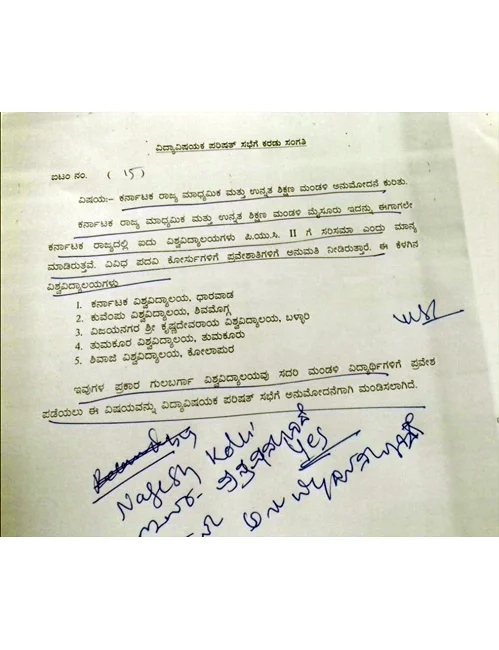 ವಿದ್ಯಾವಿಷಯಕ ಪರಿಷತ್ ಸಭೆಗೆ ಕರಡು ಸಂಗತಿ
ಐಟಂ ನಂ. (15)
ವಿಷಯ:- ಕರ್ನಾಟಕ ರಾಜ್ಯ ಮಾಧ್ಯಮಿಕ ಮತ್ತು ಉನ್ನತ ಶಿಕ್ಷಣ ಮಂಡಳಿ ಅನುಮೋದನೆ ಕುರಿತು.
ಕರ್ನಾಟಕ ರಾಜ್ಯ ಮಾಧ್ಯಮಿಕ ಮತ್ತು ಉನ್ನತ ಶಿಕ್ಷಣ ಮಂಡಳಿ ಮೈಸೂರು ಇದನ್ನು ಈಗಾಗಲೇ
ಕರ್ನಾಟಕ ರಾಜ್ಯದಲ್ಲಿ ಐದು ವಿಶ್ವವಿದ್ಯಾಲಯಗಳು ಪಿ.ಯು.ಸಿ. II ಗೆ ಸರಿಸಮಾ ಎಂದು ಮಾನ್ಯ
ಮಾಡಿರುತ್ತವೆ. ವಿವಿಧ ಪದವಿ ಕೋರ್ಸುಗಳಿಗೆ ಪ್ರವೇಶಾತಿಗಳಿಗೆ ಅನುಮತಿ ನೀಡಿರುತ್ತಾರೆ. ಈ ಕೆಳಗಿನ
ವಿಶ್ವವಿದ್ಯಾಲಯಗಳು
1. ಕರ್ನಾಟಕ ವಿಶ್ವವಿದ್ಯಾಲಯ, ಧಾರವಾಡ
2. ಕುವೆಂಪು ವಿಶ್ವವಿದ್ಯಾಲಯ, ಶಿವಮೊಗ್ಗ
3. ವಿಜಯನಗರ ಶ್ರೀ ಕೃಷ್ಣದೇವರಾಯ ವಿಶ್ವವಿದ್ಯಾಲಯ, ಬಳ್ಳಾರಿ
4. ತುಮಕೂರ ವಿಶ್ವವಿದ್ಯಾಲಯ, ತುಮಕೂರು
5. ಶಿವಾಜಿ ವಿಶ್ವವಿದ್ಯಾಲಯ, ಕೋಲಾಪುರ
ಇವುಗಳ ಪ್ರಕಾರ ಗುಲಬರ್ಗಾ ವಿಶ್ವವಿದ್ಯಾಲಯವು ಸದರಿ ಮಂಡಳಿ ವಿದ್ಯಾರ್ಥಿಗಳಿಗೆ ಪ್ರವೇಶ
ಪಡೆಯಲು ಈ ವಿಷಯವನ್ನು ವಿದ್ಯಾವಿಷಯಕ ಪರಿಷತ್ ಸಭೆಗೆ ಅನುಮೋದನೆಗಾಗಿ ಮಂಡಿಸಲಾಗಿದೆ.
Nagesh Kolli
Yes